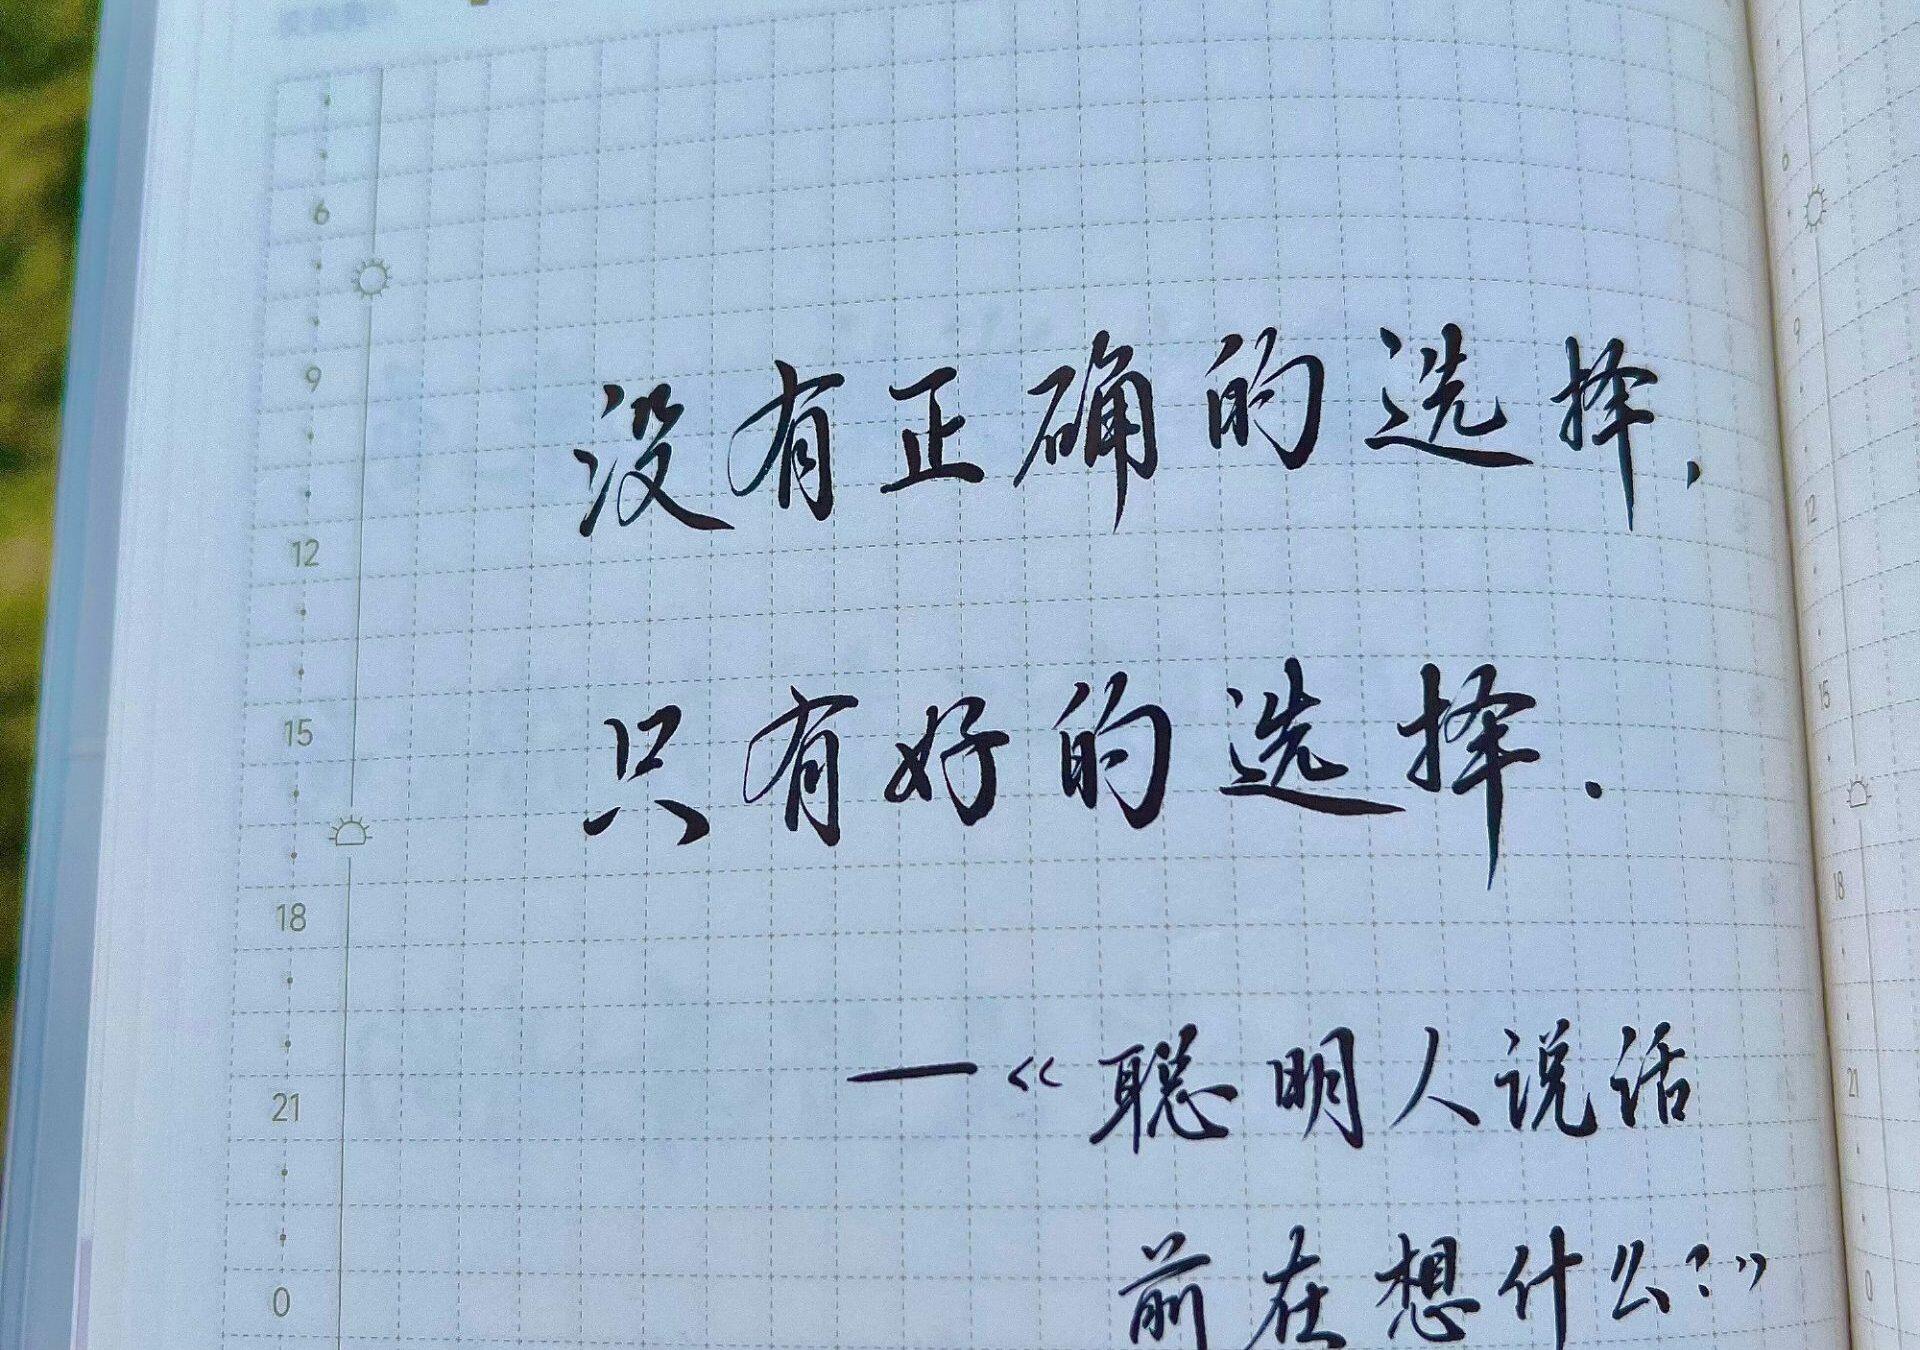 没有正确的选择,
只有好的选择.
—《聪明人说话
前在想什么?》
6
9
12
15
18
21
0
6
9
12
15
18
21
0